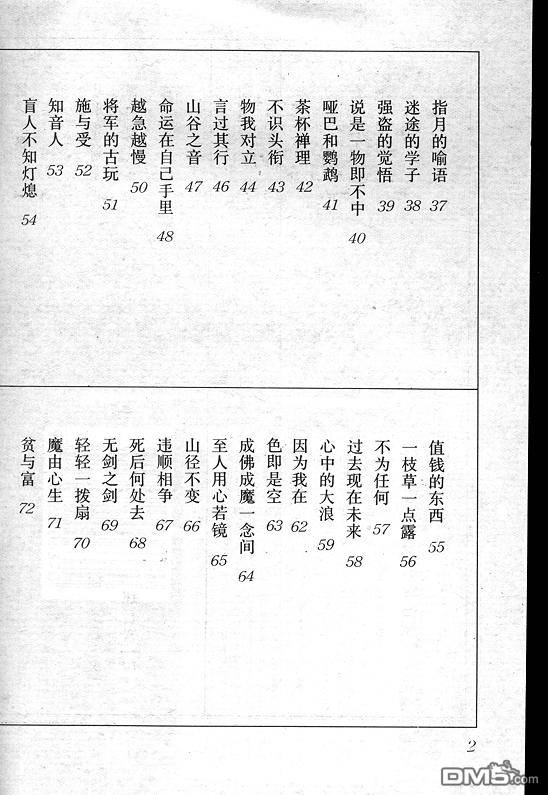 指月的喻语 37
迷途的学子 38
强盗的觉悟 39
说是一物即不中 40
哑巴和鹦鹉 41
茶杯禅理 42
不识头衔 43
物我对立 44
言过其行 46
山谷之音 47
命运在自己手里 48
越急越慢 50
将军的古玩 51
施与受 52
知音人 53
盲人不知灯熄 54
值钱的东西 55
一枝草一点露 56
不为任何 57
过去现在未来 58
心中的大浪 59
因为我在 62
色即是空 63
成佛成魔一念间 64
至人用心若镜 65
山径不变 66
违顺相争 67
死后何处去 68
无剑之剑 69
轻轻一拨扇 70
魔由心生 71
贫与富 72
2
DM5.com